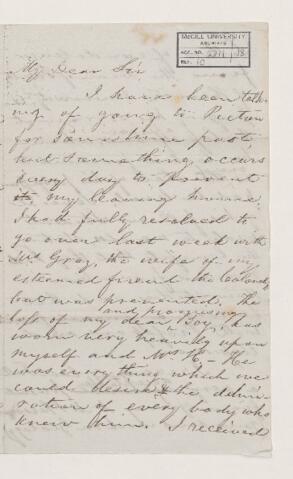 McGILL UNIVERSITY
ARCHIVES
ACC. NO.
REF. 10
My Dear Sir
I have been talk-
ing of going to Pictou
for sometime past
but something occurs
every day to prevent
my leaving home.
I had fully resolved to
go over last week with
Gray, the wife of my
esteemed friend the
but was prevented. The
and promising
loss of my dear Boy, has
worn very heavily upon
myself and Mrs H - He
was everything which we
could desire & the admi-
ration of every body who
knew him. I received